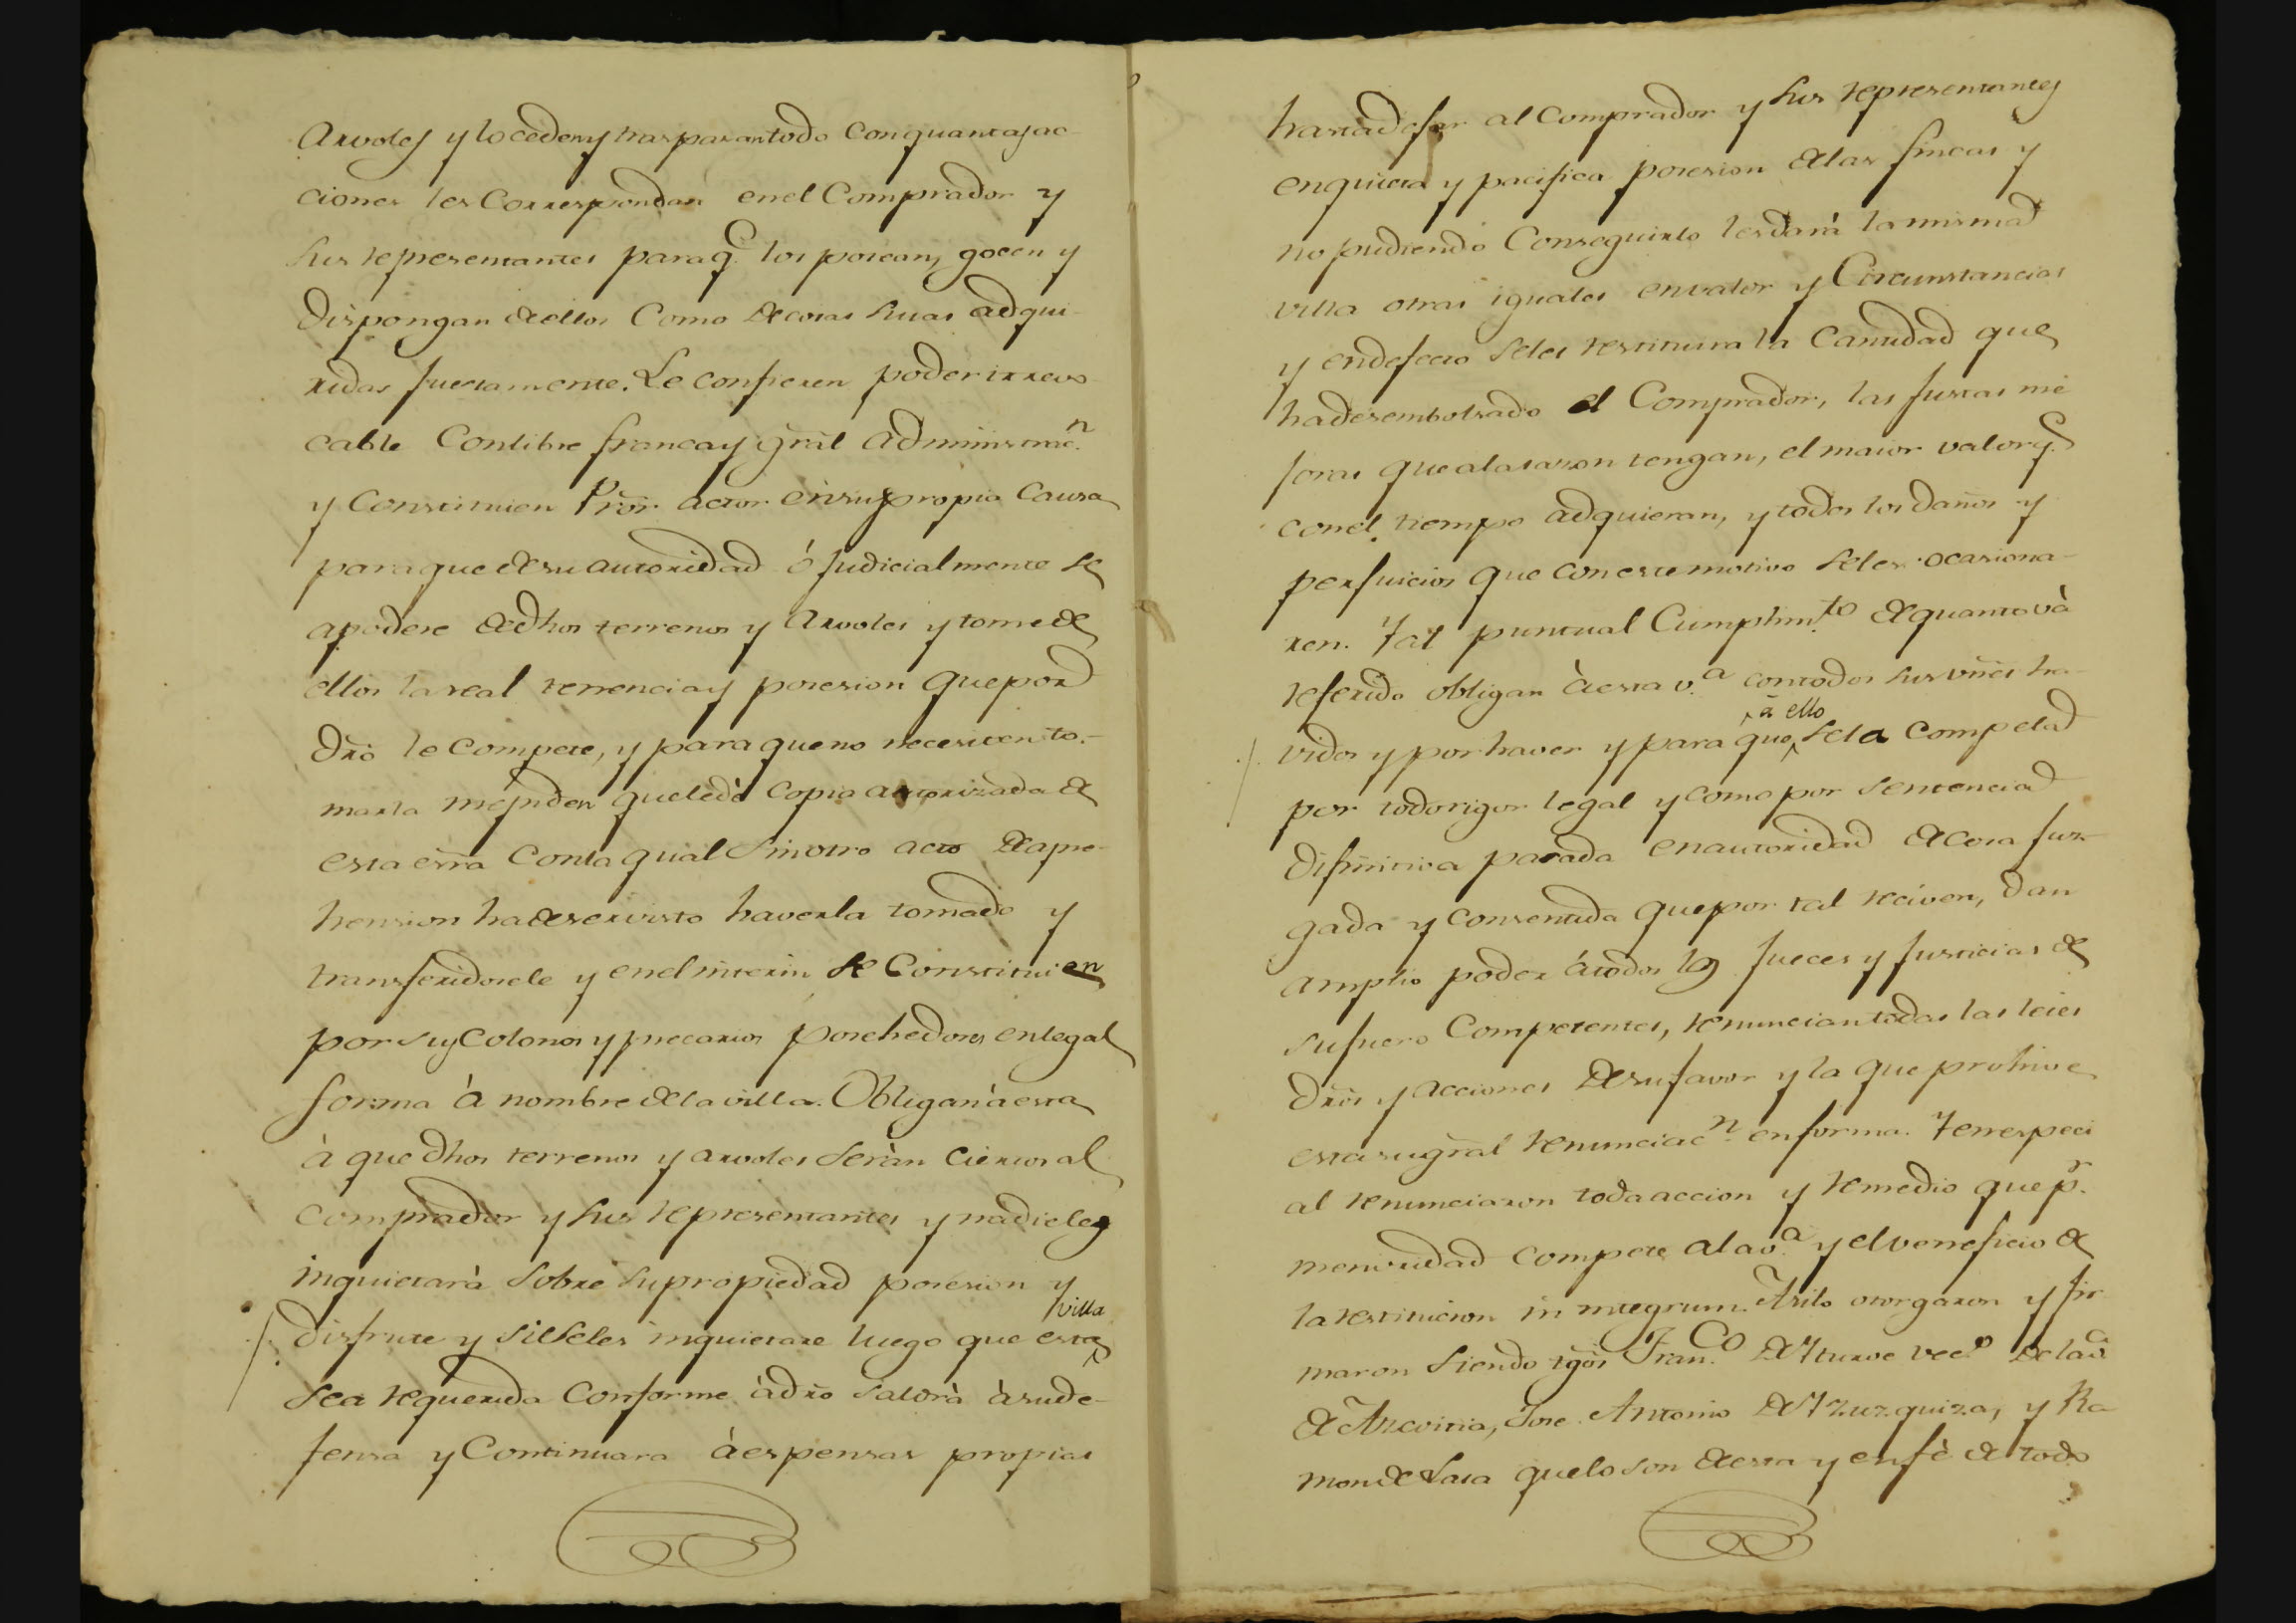 Arvoles y lo ceden y trasparan todo con quantas ac-
ciones les Correspondan en el Comprador y
sus representantes para q.e los posean, gocen y
dispongan de ellos Como de cosas suias adqui-
ridas justamente. Le confieren poder irrevo-
cable Con libre franca y gral administrac.n
y Constituien Pror. actor en su propia Causa
para que de su autoridad ó Judicialmente se
apodere de dhos terrenos y Arvoles y tome de
ellos la real tenencia y posesion que por
dro le Compete, y para que no necesiten to-
marla me piden que le dé copia autorizada de
esta esrra Con la qual sin otro acto de apre-
hension ha de ser visto haverla tomado y
transferidosele y en el interin se Constituien
por sus Colonos y precarios posehedores en legal
forma à nombre de la villa. Obligan à esta
à que dhos terrenos y arvoles seràn ciertos al
Comprador y sus representantes y nadie les
inquietarà sobre su propiedad posesion y
disfrute y si se les inquietare luego que esta villa
sea requerida Conforme à dro saldrà à su de-
fensa y Continuara à espensas propias
hasta dejar al Comprador y sus representantes
en quieta y pacifica posesion de las fincas y
no pudiendo Conseguirlo les darà la misma
villa otras iguales en valor y Circunstancias
y en defecto se les restituira la Cantidad que
ha desembolsado el Comprador, las justas me-
joras que a la sazon tengan, el maior valor q.e
con el tiempo adquieran, y todos los daños y
perjuicios que con este motivo se les ocasiona-
ren. Y al puntual Cumplim.to de quanto và
referido obligan à esta v.a con todos sus vnes ha-
vidos y por haver y para que à ello se la compela
por todo rigor legal y como por sentencia
difinitiva pasada en autoridad de cosa juz-
gada y consentida que por tal reciven, dan
amplio poder á todos los Jueces y Justicias de
su fuero Competentes, renuncian todas las leies
dros y acciones de su favor y la que prohive
esta su gral renunciac.n en forma. Y en especi
al renunciaron toda accion y remedio que p.r
menoridad compete a la v.a y el veneficio de
la restitucion in integrum. Asi lo otorgaron y fir-
maron siendo tgos Fran.co de Yturve vec.o de la v.a
de Azcoitia, Jose Antonio de Yzuzquiza, y Ra-
mon de Lasa que lo son de esta y en fè de todo